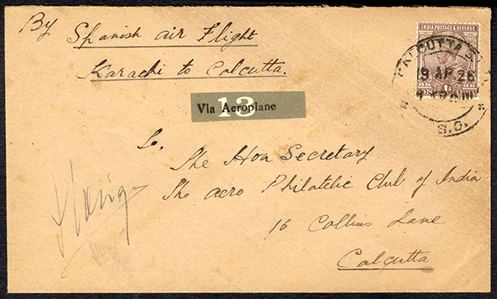 By
Spanish air Flight
Karachi to Calcutta.
INDIA POSTAGE & REVENUE
CALCUTTA
19 AP. 26
S.O.
13
Via Aeroplane
To.
The Hon Secretary
The aero Philatelic Club of India
16 Collins Lane
Calcutta